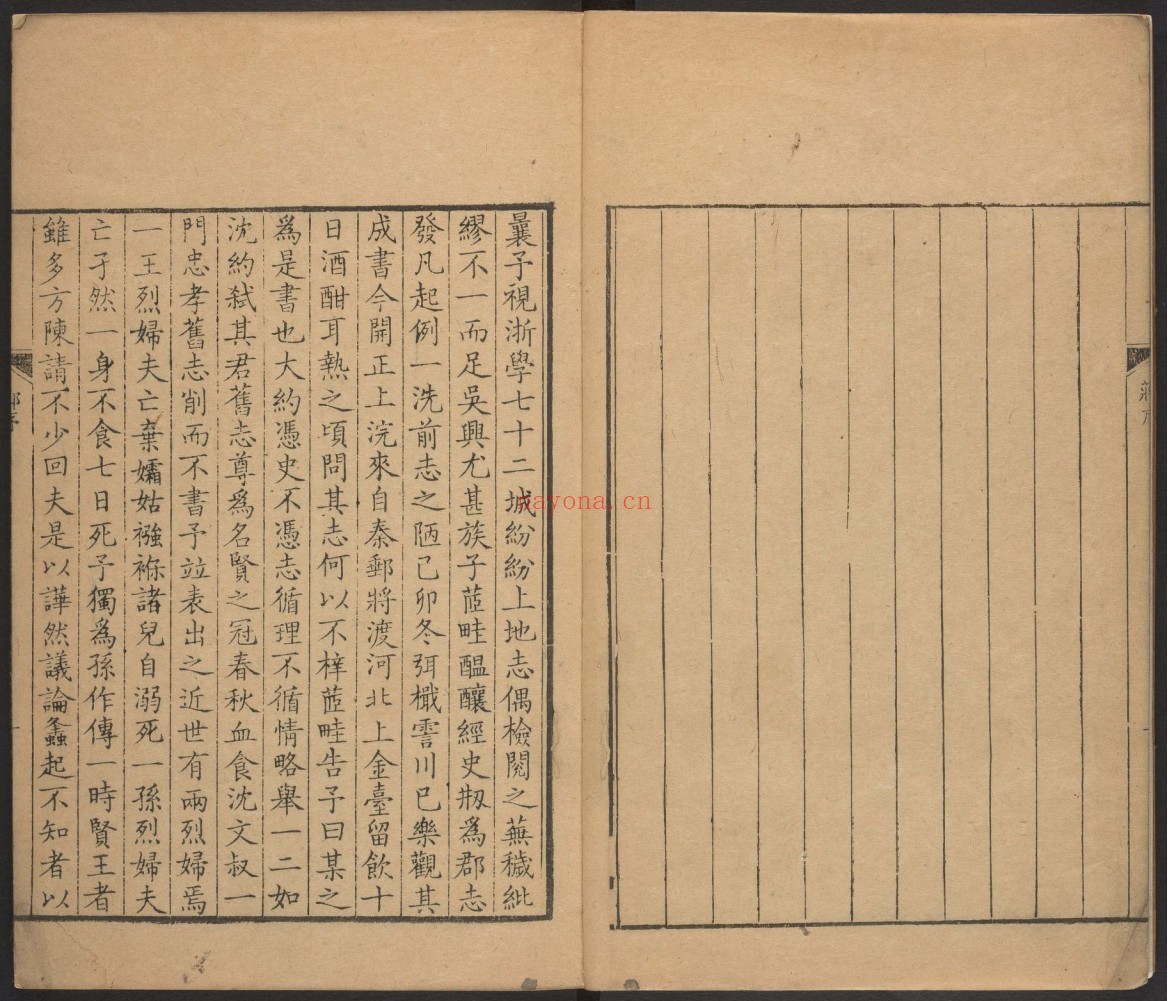 曩予視浙學七十二城紛紛上地志偶檢閱之蕪穢紕
繆不一而足吳興尤甚族子茝畦醞釀經史刱爲郡志
發凡起例一洗前志之陋己卯冬弭檝霅川已樂觀其
成書今開正上浣來自秦郵將渡河北上金臺留飲十
日酒酣耳熱之頃問其志何以不梓茝畦告予曰某之
爲是書也大約憑史不憑志循理不循情略舉一二如
沈約弒其君舊志尊爲名賢之冠春秋血食沈文叔一
門忠孝舊志削而不書予竝表出之近世有兩烈婦焉
一王烈婦夫亡棄孀姑襁褓諸兒自溺死一孫烈婦夫
亡孑然一身不食七日死予獨爲孫作傳一時賢王者
雖多方陳請不少回夫是以譁然議論螽起不知者以
nayona.cn